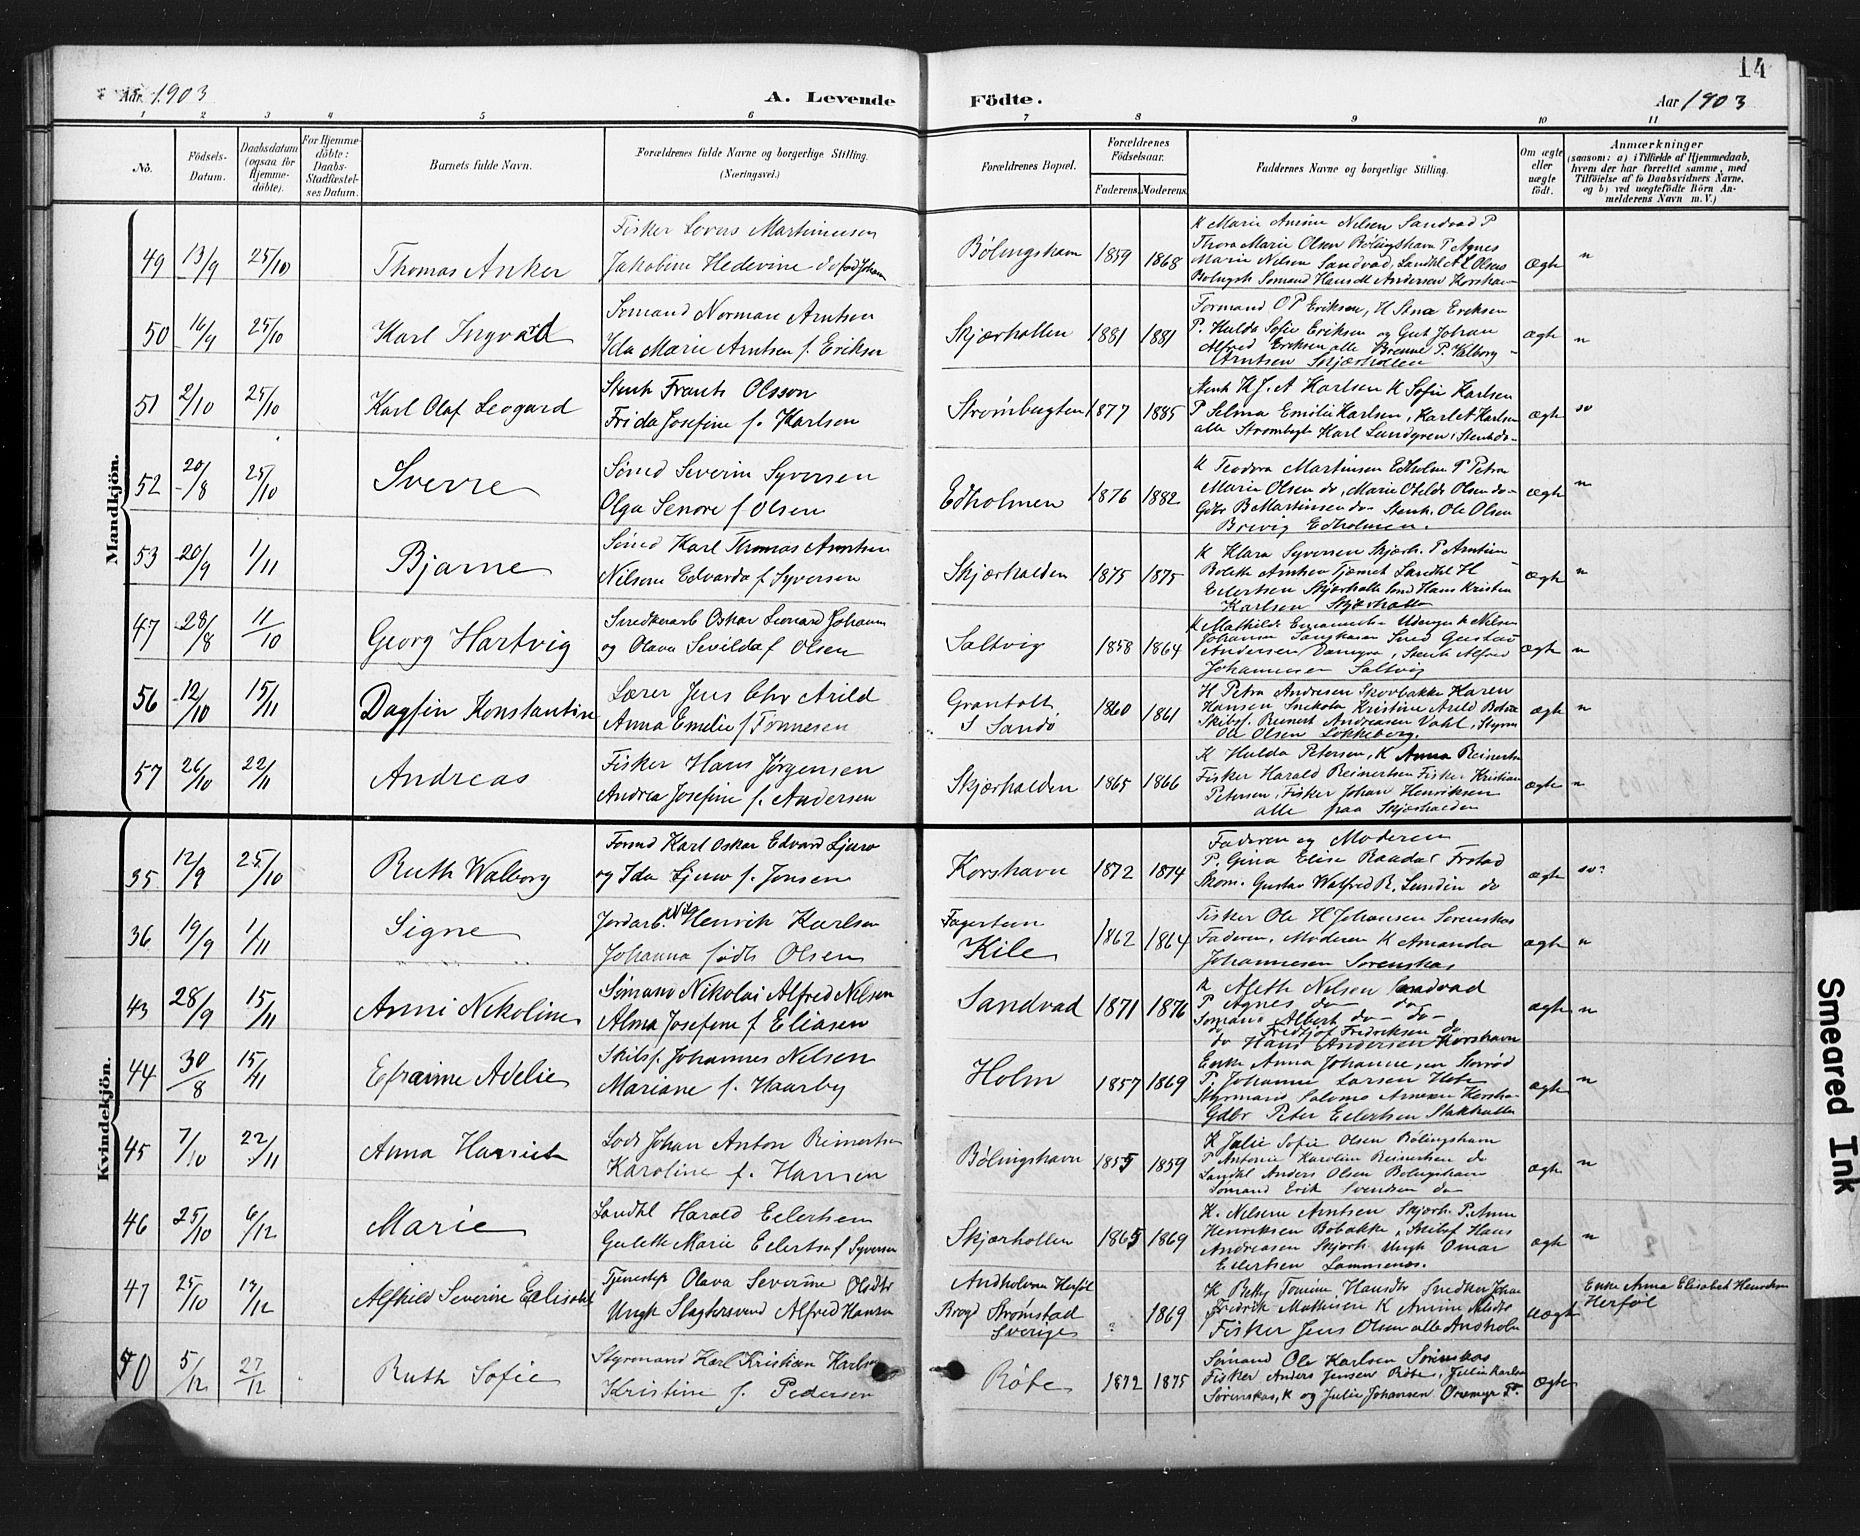 14
Aar 1903 A. Levende Födte. Aar 1903
1 2 3 4 5 6 7 8 9 10 11
No. Födsels-Datum. Daabsdatum (ogsaa for Hjemme-döbte). For Hjemme-döbte: Daabs-Stadfæstel-ses Datum. Barnets fulde Navn. Forældrenes fulde Navne og borgerlige Stilling. (Næringsvei.) Forældrenes Bopæl. Forældrenes Födselsaar. Faderens. Moderens. Faddernes Navne og borgerlige Stilling. Om ægte eller uægte födt. Anmærkninger (saasom: a) i Tilfælde af Hjemmedaab, hvem der har forrettet samme, med Tilföielse af to Daabsvidners Navne, og b) ved uægtefödte Börn An-melderens Navn m. V.)
Mandkjön.
Fisker Lovers Martinusen K Marie Amine Nilsen Sandvad P
49 13/9 25/10 Thomas Anker Jakobine Hedevine Bølingshavn 1859 1868 Thora Marie Olsen Bølingshavn P Agnes ægte n
Marie Nilsen Sandvad, Landhl A L Olsen
Bolingsh Sömand Hans M Andersen Korshav
Sömand Norman Arntsen Formand O P Eriksen, H Stna Eriksen
50 16/9 25/10 Karl Ingvard Ida Marie Arntsen f. Eriksen Skjærhollen 1881 1881 P. Hulda Sofie Eriksen og Gut Johan ægte n
Alfred Eriksen alle Brenne P. Valborg
Arntsen Skjærhollen
Stenh Frants Olsson Stenh K J. A Karlsen K Sofie Karlsen
51 2/10 25/10 Karl Olaf Leogard Frida Josefine f. Karlsen Strømbugten 1877 1885 P Selma Emilie Karlsen, Karl A Karlsen ægte sv
alle Strømbugt Karl Lundgren, Stenh do
Sömd Severin Syversen K Teodora Martinsen Edholm P Petra
52 20/8 25/10 Sverre Olga Lenore f Olsen Edholmen 1876 1882 Marie Olsen do, Marie Otilde Olsen do ægte n
Gdbr B Martinsen do Stenh. Ole Olsen
Brevig Edholmen.
Sömd Karl Thomas Arntsen K Klara Syversen Skjærh. P Arntine
53 20/9 1/11 Bjarne Nilsine Edvarda f. Syversen Skjærhalden 1875 1875 Bolette Arntsen Tjømet Landhl H ægte n
Eilertsen Skjærhalle Sömd Hans Kristian
Karlsen Skjærhalle
Snedkerarb Oskar Leonard Johann K Mathilde Udengen K Nilsen
47 28/8 11/10 Georg Hartvig og Olava Sevilda f Olsen Saltvig 1858 1864 Johanna Sand Gustav ægte n
Andersen Stenh Alfred
Johannesen Saltvig
Lærer Jens Chr Arild Grantolt H Petra Andresen Skovbakke Karen
56 12/10 15/11 Dagfin Konstantin Anna Emelie f Tönnesen S Sandø 1860 1861 Hansen Kristine Arild ægte n
Skibsf. Reinert Andreasen Vahl, Styrm
Ole Olsen Løkkeberg.
Fisker Hans Jørgensen K Hulda Petersen, K Anna Reinertsen
57 26/10 22/11 Andreas Andrea Josefine f. Andersen Skjærhalden 1865 1866 Fisker Harald Reinertsen Fisker Kristian ægte n
Petersen, Fisker Johan Henriksen
alle paa Skjærhalden
Kvindekjön.
Karl Oskar Edvard Ljuno Faderen og Moderen
35 12/9 25/10 Ruth Walborg og Ida Ljuno f. Jonsen Korshavn 1872 1874 P. Gina Elise Raadal Frstad ægte sv
Skom. Gustav Walfred R. Lundin do
Jordarb. Nils Henrik Karlsen Fagertun Fisker Ole H Johansen Sørenskas
36 19/9 1/11 Signe Johanna födt Olsen Kile 1862 1864 Faderen, Moderen K Amanda ægte n
Johannesen Sørenskas
Sömand Nikolai Alfred Nilsen K Aleth Nilsen Sandvad
43 28/9 15/11 Anni Nikoline Alma Josefine f Eliasen Sandvad 1871 1876 P Agnes do do ægte n
Sömand Albert do do
do Fredtjof Fredriksen do
do Hans Andersen Korshavn
Skibsf. Johannes Nilsen Enke Anna Johannesen Storröd
44 30/8 15/11 Efraime Adelie Mariane f. Haarby Holm 1857 1869 P. Johanne Larsen ægte n
Styrmand Salomo Arnesen
Gdbr Peter Eilertsen Stokkallen
Lods Johan Anton Reinertsen K Julie Sofie Olsen Bølingshavn
45 7/10 22/11 Anna Harriet Karoline f. Hansen Bølingshavn 1855 1859 P Antonie Karoline Reinertsen do ægte n
Landhl Anders Olsen Bølingshavn
Sømand Erik Svendsen do
Landhl Harald Eilertsen K. Nilsine Arntsen Skjærh. P. Anna
46 25/10 6/12 Marie Gulette Marie Eilertsen f Syversen Skjærhollen 1865 1869 Henriksen Bobakke, Skibsf Hans ægte n
Andreasen Skjærh. Ungk Omar
Eilertsen
Tjenestep Olava Severine Olsdtr Andholmen Herføl K Betty Tomine Hansdtr Snedker Johan Enke Anna Elisabet Henriksen
47 25/10 13/12 Alfhild Severine Eelisabet Ungk Slagtersvend Alfred Hansen Brogd Strømstad ? 1869 Fredrik Mathisen K Amine Nilsdtr uægte Herføl
Sverige Fisker Jens Olsen alle Andholm
Styrmand Karl Kristian Karlsen Sömand Ole Karlsen Sørenskas
50 5/12 27/12 Ruth Sofie Kristine f. Pedersen Röbe 1872 1875 Fisker Anders Jensen Röbe, Julie Karlsen ægte
Sørenskas, K og Julie Johansen
Smeared Ink